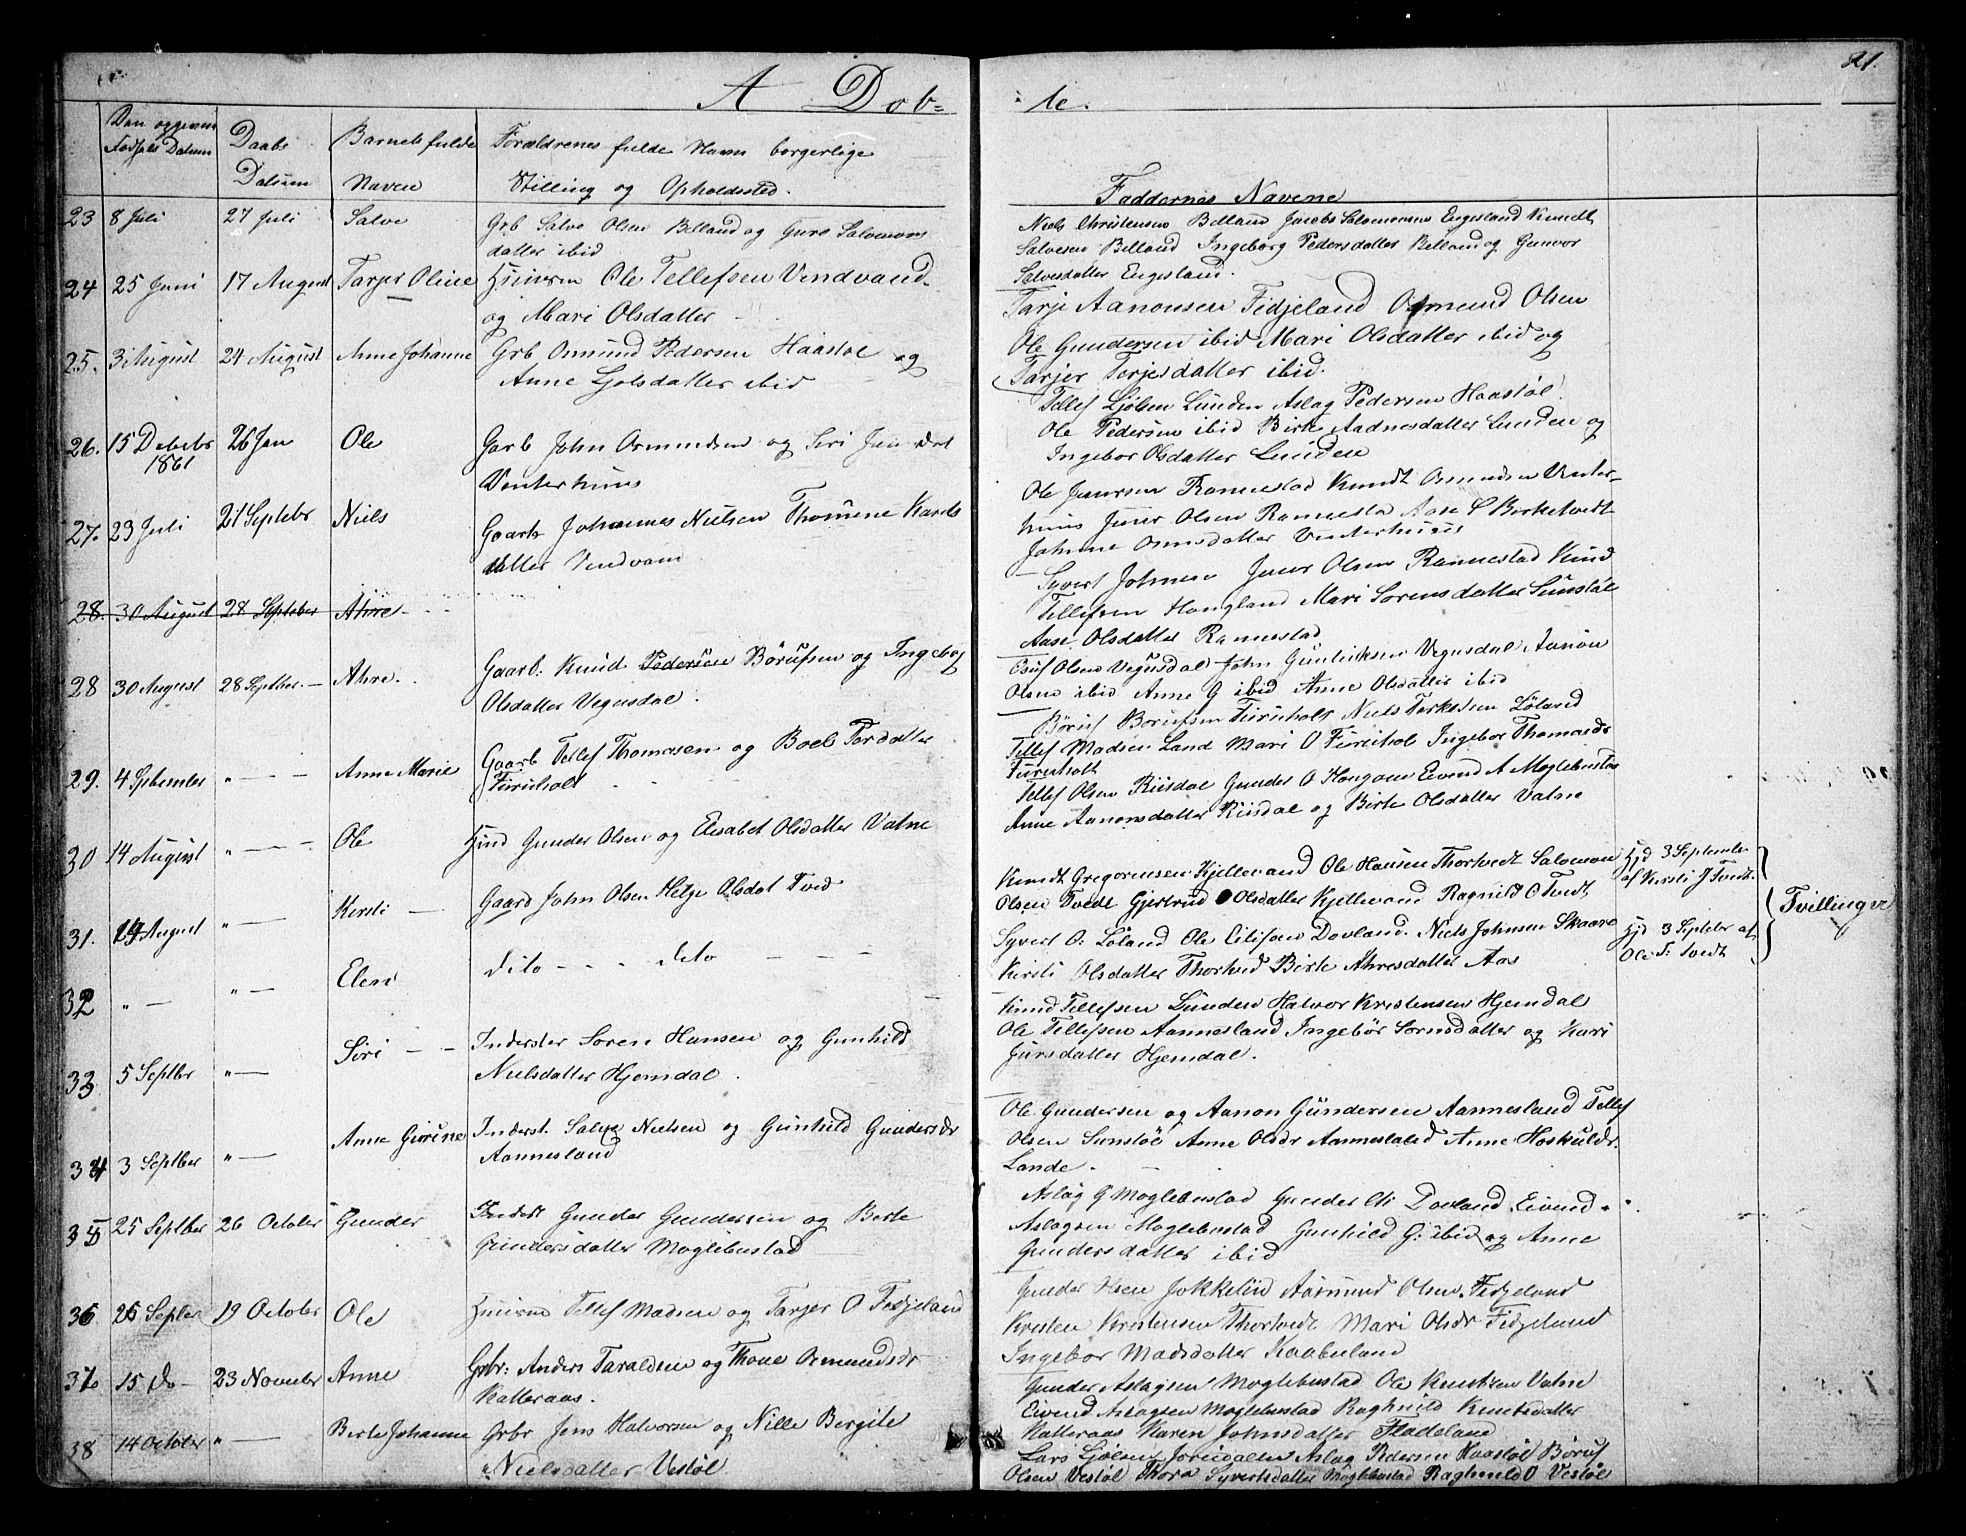 21.
A Dob= te.
Den opgivne Fødsels Datum
Daabs Datum
Barnets fulde Navn
Forældrenes fulde Navn borgerlige Stilling og Opholdssted.
Faddernes Navene
23 8 Juli 27 Juli Salve Grb Salve Olsen Belland og Guro Salvemons
datter ibid
Niels Christensen Belland Jacob Salomonsen Engesland Knudt
Salvesen Belland Ingeborg Pedersdatter Belland og Gunvor
Salvesdatter Engesland.
24 25 Juni 17 August Tarjer Oline Huusm Ole Tellefsen Vendvand
og Mari Olsdatter
Tarje Aanonsen Fidjeland Osmund Olsen
Ole Gundersen ibid Mari Olsdatter ibid og
Tarjer Terjesdatter ibid.
25. 3 August 24 August Anne Johanne Grb Osmund Pedersen Haastøl og
Anne Ljølsdatter ibid
Tellef Ljølsen Lunden Aslag Pedersen Haastøl.
Ole Pedersen ibid Birte Aadnesdatter Lunden og
Ingebor Olsdatter Lunden
26. 15 Debebr 1861 26 Jan Ole Garb John Osmundsen og Siri Dat
Venterhuus
Ole Rannestad Knudt Osmundsen Venter-
huus Olsen Rannesta Aase Birketvedt
Johnne Venterhuus
27. 23 Juli 21 Septebr Niels Gaarb Johannes Nielsen Thomine Karls
datter Vendvand
Syvert Johnsen Olsen Rannestad Knud
Tellefsen Hougland Mari Sørensdatter Sunstøl
Aase Olsdatter Rannestad
28. 30 August 28 Septeber Ahre
28 30 August 28 Septber. Ahre. Gaarb. Knud Pedersen Børufsen og Ingebor
Olsdatter Vegusdal.
Osuf Olsen Vegusdal John Vegusdal Aanon
Olsen ibid Anne G ibid Anne Olsdatter ibid
29. 4 Sptember " Anne Marie Gaarb Tellef Thomasen og Boel Tordatter
Furuholt
Børuf Børufsen Furuholt Niels Terkelsen Løland
Tellef Madsen Land Mari O Furuholt Ingebor Thomasdr
Furuholt
30 14 August " Ole Hmd Gunder Olsen og Elisabet Olsdatter Vatne
Tellef Olsen Riisdal Gunder O Hougane Eivend A Moglebustad
Anne Aanonsdatter Riisdal og Birte Olsdatter Vatne
31. 19 August " Kirsti Gaard John Olsen Helge Olsdat Tved
Knudt Gregorensen Kjellevand Ole Hansen Thortvedt Salvemon
Olsen Tvedt Gjertrud Olsdatter Kjellevand Ragnild O Tvedt
Hjd 3 September
af Kirsti J Tvedt.
32 " " Elen dito dito
Syvert O. Løland Ole Eilifsen Dovland. Niels Johnsen Skaare
Kirsti Olsdatter Thortved Birte Ahresdatter Aas
Hjd 3 Septebr af
Ole T. Tvedt
Tvillinger
33 5 Septbr " Siri Inderster Soren Hansen og Gunhild
Nielsdatter Hjemdal.
Knud Tellefsen Lunden Halvor Kristensen Hjemdal
Ole Tellefsen Aannesland Ingebor Sornsdatter og Kari
Jursdatter Hjemdal.
34 3 Septber " Anne Gurine Inderst. Salve Nielsen og Gunhild Gundersdr
Aannesland
Ole Gundersen og Aanon Gundersen Aannesland Tellef
Olsen Sunstøl Anne Olsdr Aannesland Anne Hoskuldr.
Lande.
35 25 Septber 26 October Gunder Inderst Gunder Gundersen og Berte
Gundersdatter Moglebustad
Aslag G Moglebustad Gunder Dovland Eivend
Aslagsen Moglebustad Gunhild G. ibid og Anne
Gundersdatter ibid
36 25 Septer 19 October Ole Huusmd Tellef Madsen og Tarjer O Fidjeland
Gunder Olsen Jokkelin Aasmund Olsen Fidjeland
Kristen Kristensen Thortvedt Mari Olsdr Fidjeland
Ingebor Madsdatter Kaabuland
37 15 Do 23 Novebr Anne Grbr: Anders Taraldsen og Thone Osmundsdr
Katteraas.
Gunder Aslagsen Moglebustad Ole Knutsen Vatne
Eivend Aslagsen Moglebustad Raghnild Knutsdatter
Katteraas Karen Johnsdatter Fladeland
38 14 October " Berte Johanne Grbr Jens Halvorsen og Nille Bergite
Nielsdatter Vestøl
Lars Ljølsen Aslag Pedersen Haastøl Børuf
Olsen Vestøl Thora Syvertsdatter Moglebustad Raghnild O Vestøl